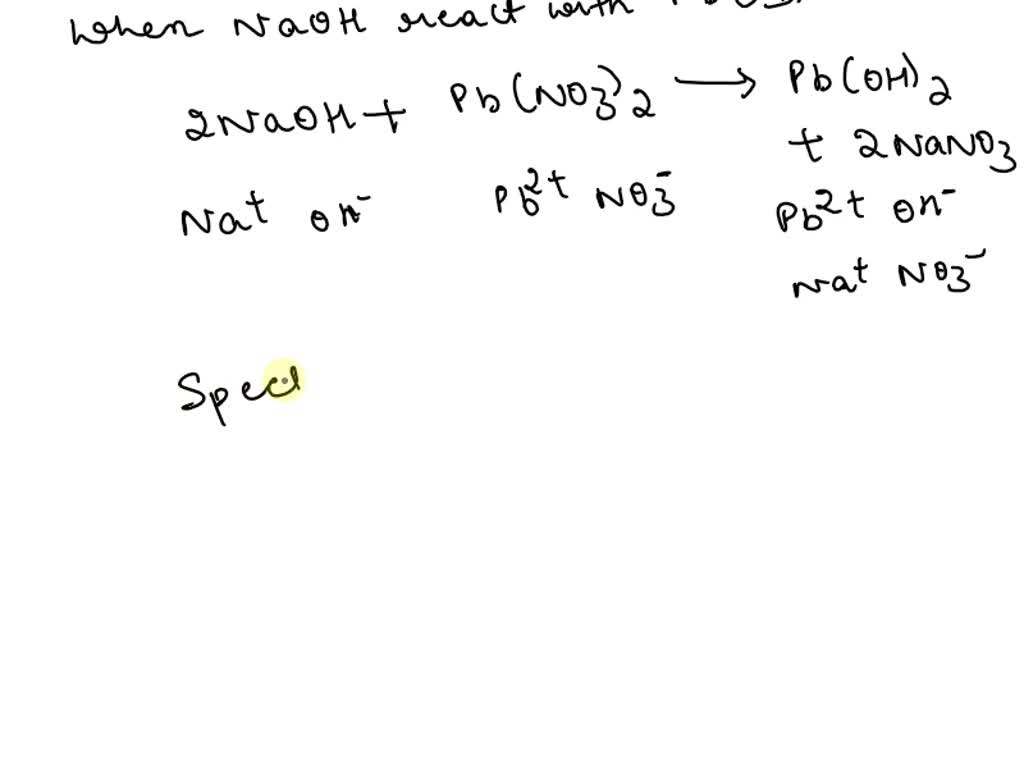 when NaOH react with
2NaOH + Pb(NO3)2 → Pb(OH)2
+ 2NaNO3
Na+ OH- Pb2+ NO3-
Pb2+ OH-
Na+ NO3-
Spec